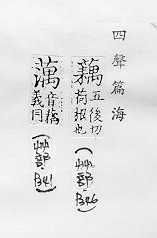 四聲篇海
藕 五後切
荷根也
(艸部 B46)
𦺖 音藕
義同
(艸部 B41)